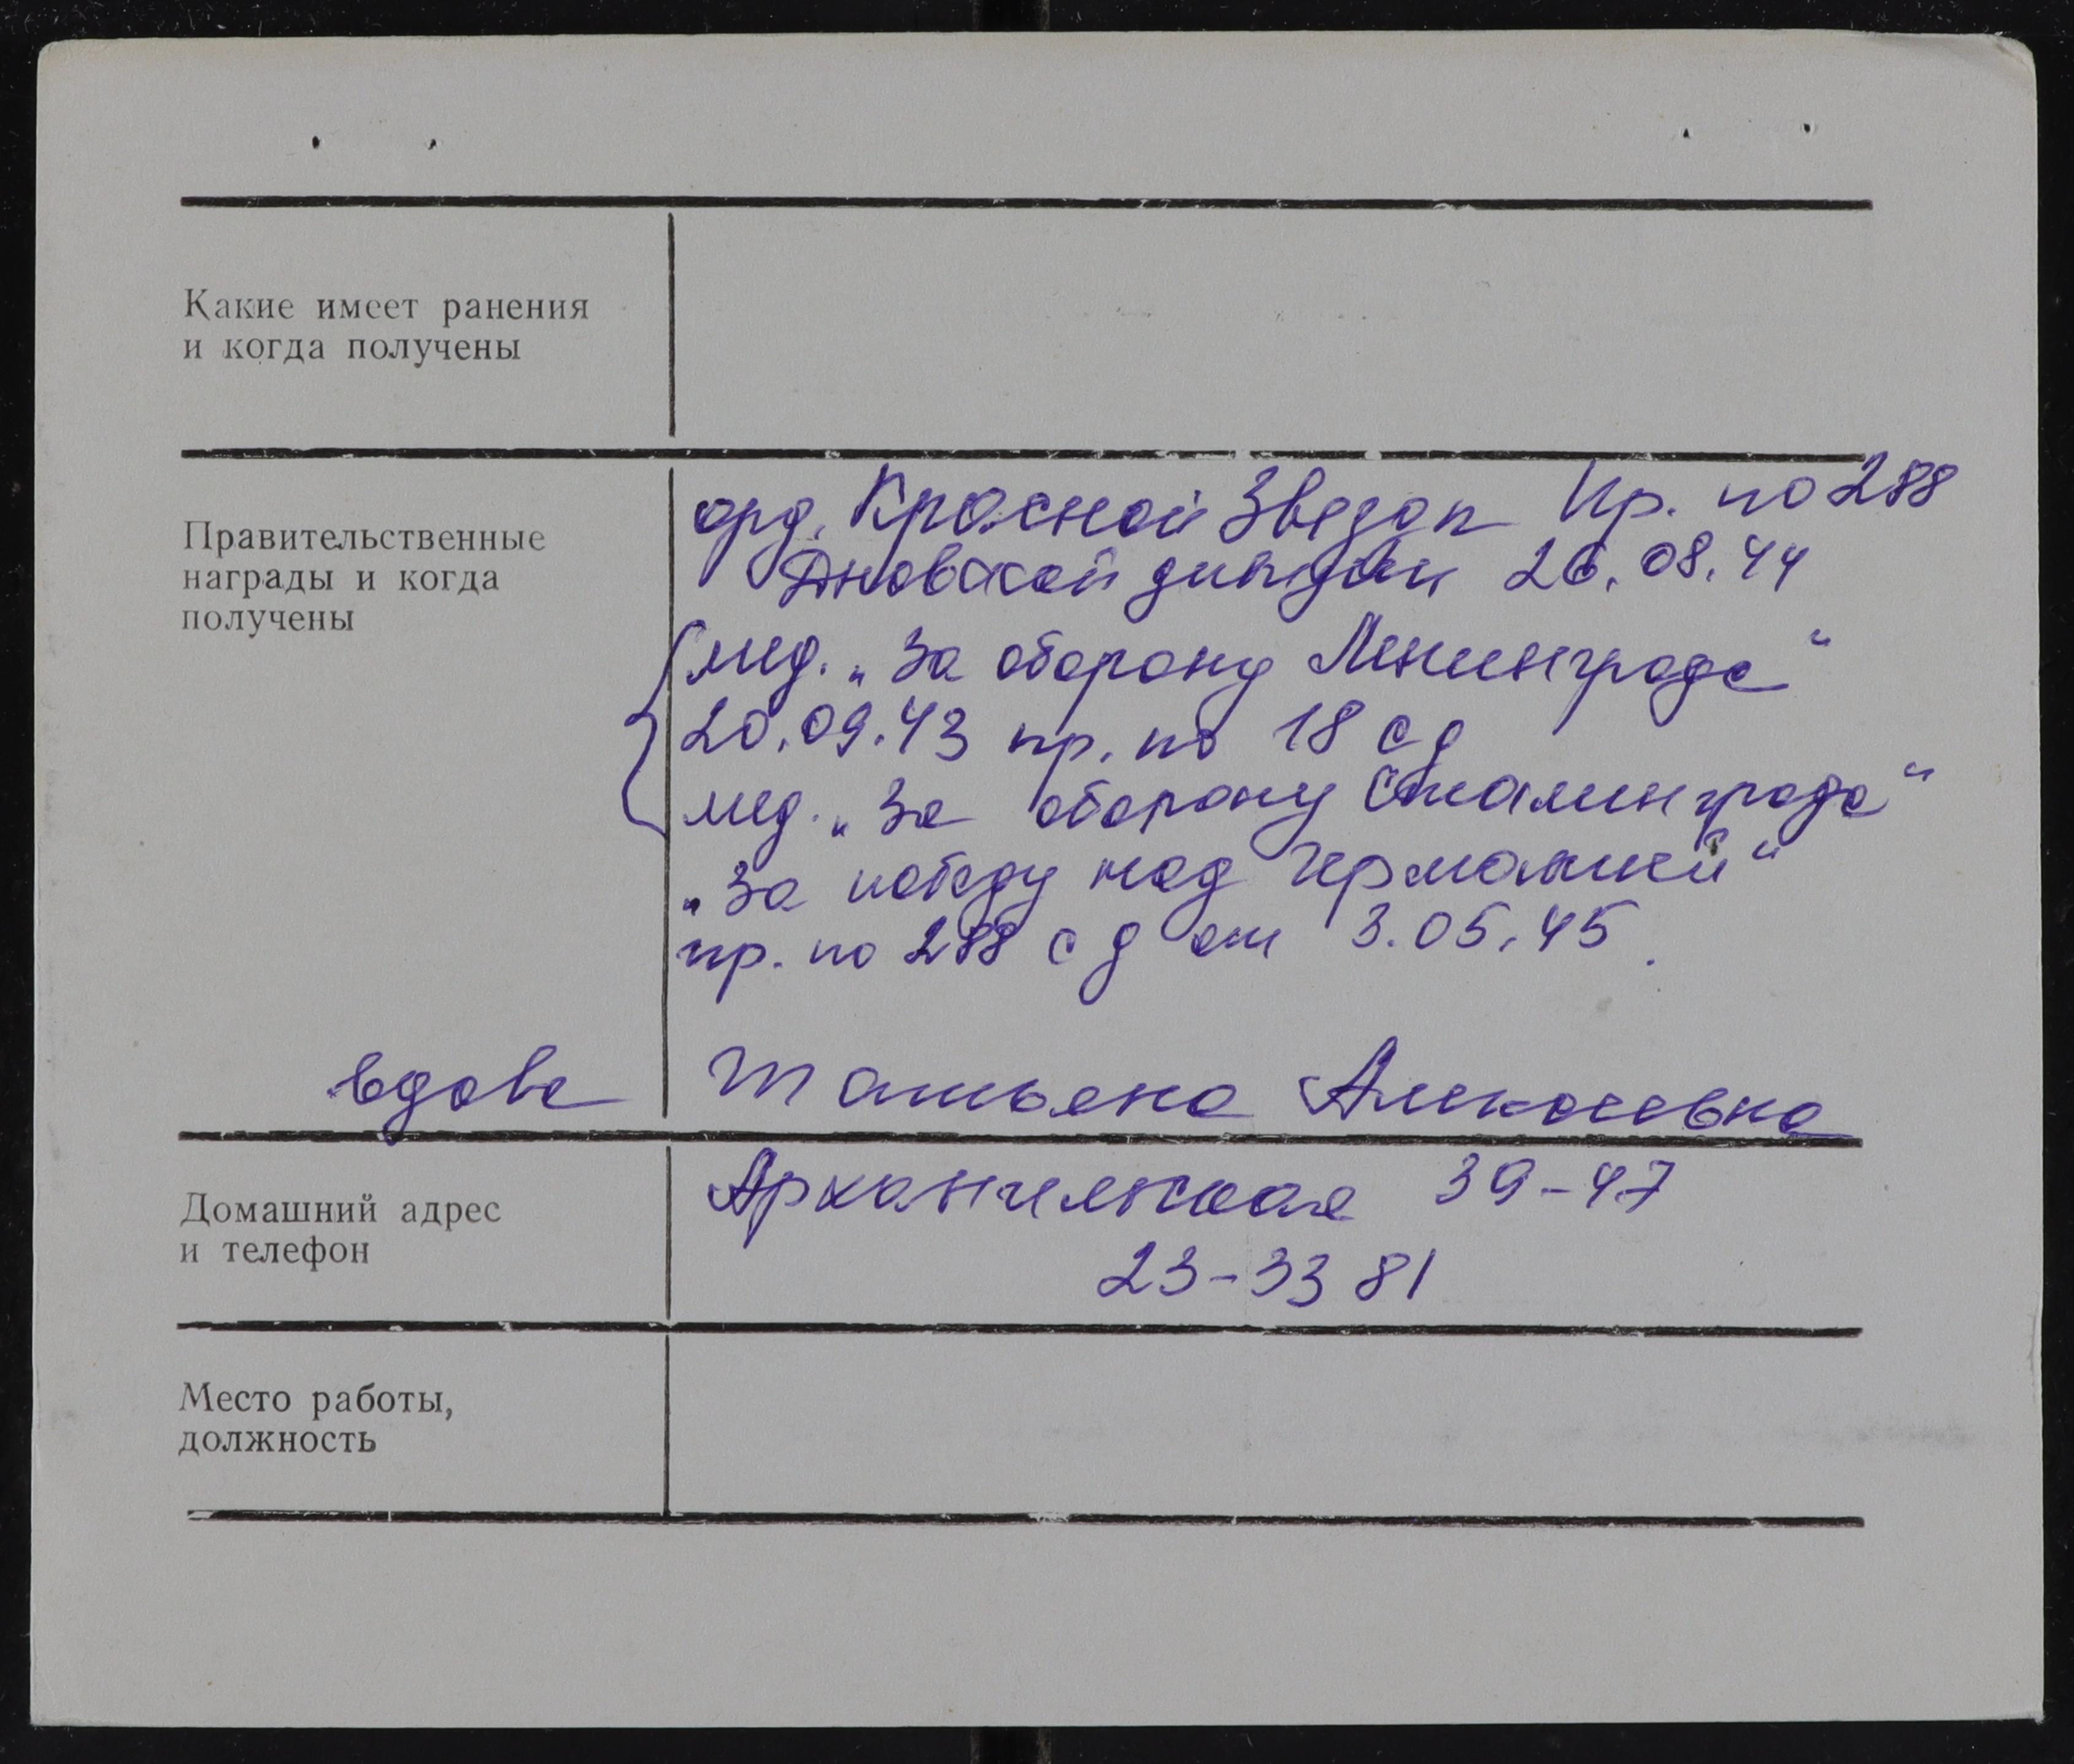 Какие имеет ранения
и когда получены
Правительственные
награды и когда
получены
орд. Красной Звезды Пр. по 288
Дновской дивизии 26.08.44
мед. „За оборону Ленинграда“
20.09.43 пр. по 18 сд
мед. „За оборону Сталинграда“
„За победу над Германией“
пр. по 288 сд от 3.05.45.
вдова Татьяна Алексеевна
Домашний адрес
и телефон
Архангельская 39-47
23-33 81
Место работы,
должность